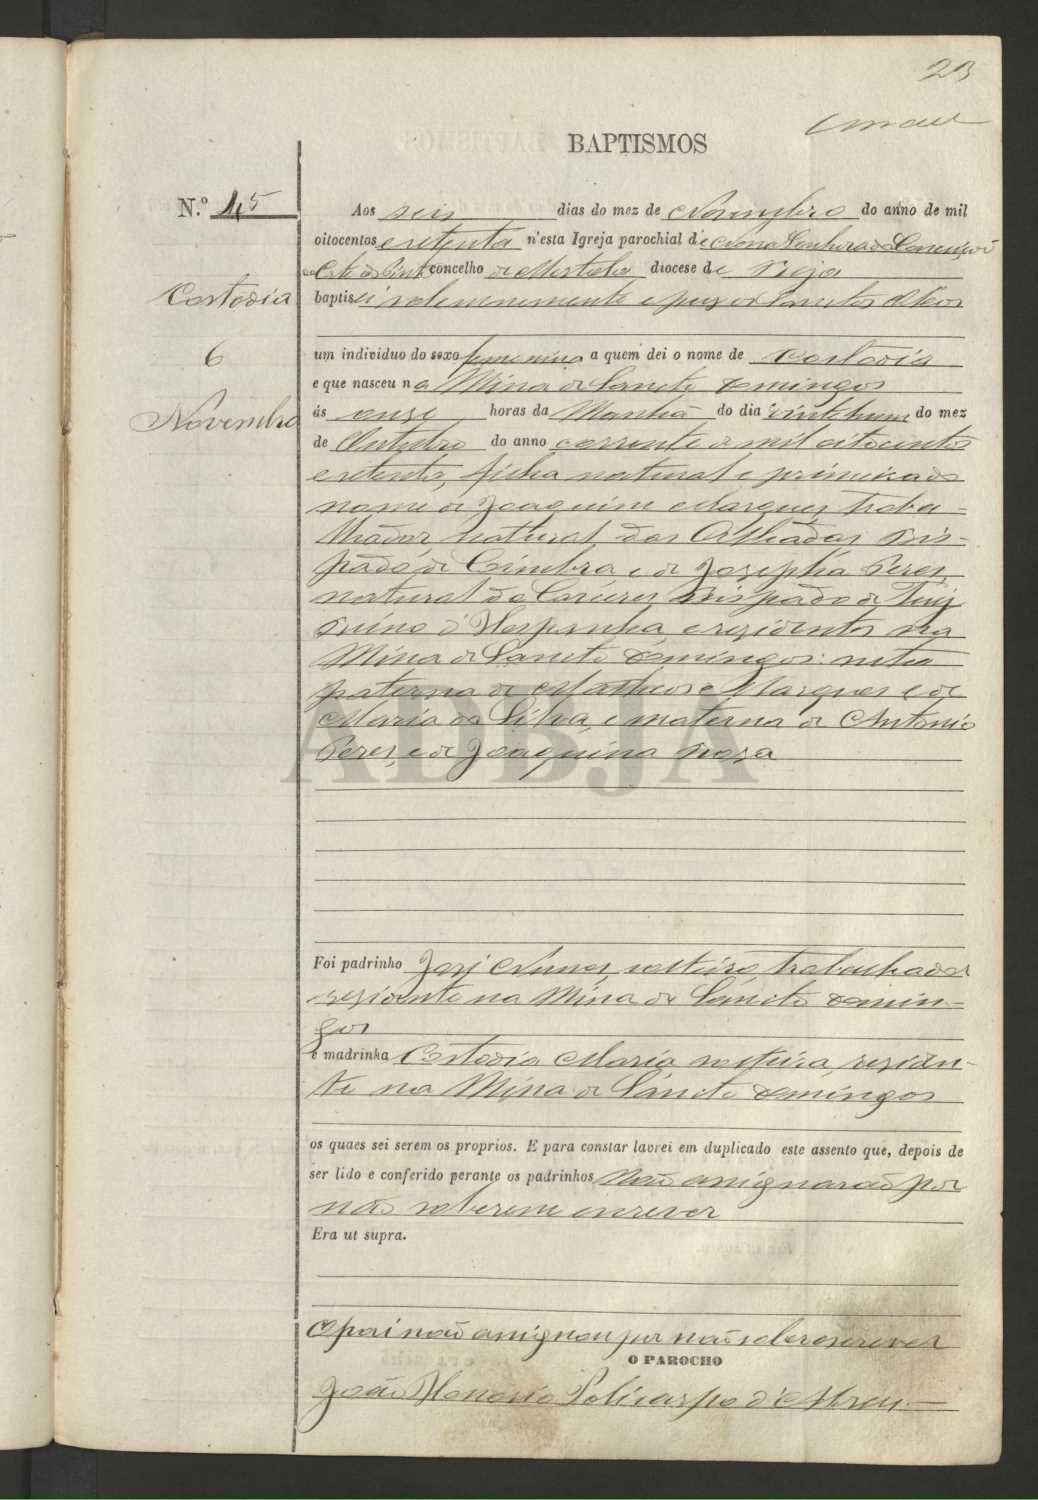 23
BAPTISMOS
N.º 45
Custodia
6
Novembro
Aos seis dias do mez de Novembro do anno de mil
oitocentos e setenta n'esta Igreja parochial de Nossa Senhora da Conceiçã
concelho de Mertola diocese de Beja
baptisei solemnemente e puz os Sanctos Oleos
um individuo do sexo femenino a quem dei o nome de Custodia
e que nasceu na Mina de Sancto Domingos
ás onze horas da Manhã do dia vinte hum do mez
de Outubro do anno corrente de mil oitocentos
e setenta, filha natural e primeira do
nome de Joaquim Marques, traba-
lhador natural das Alhadas Bis-
pado de Coimbra e de Josepha Peres,
natural de Bispado de Tuy
Reino d'Hespanha, e residentes na
Mina de Sancto Domingos: neta
paterna de Matheos Marques e de
Maria da Silva, e materna de Antonio
Peres, e de Joaquina Rosa
Foi padrinho José Nunes, solteiro trabalhador
residente na Mina de Sancto Domin-
gos
e madrinha Custodia Maria solteira, residen-
te na Mina de Sancto Domingos
os quaes sei serem os proprios. E para constar lavrei em duplicado este assento que, depois de
ser lido e conferido perante os padrinhos não assignarão por
não saberem escrever
Era ut supra.
O pai não assignou por não saber escrever
O PAROCHO
João Honorio Policarpo d'Abreu
ADBJA